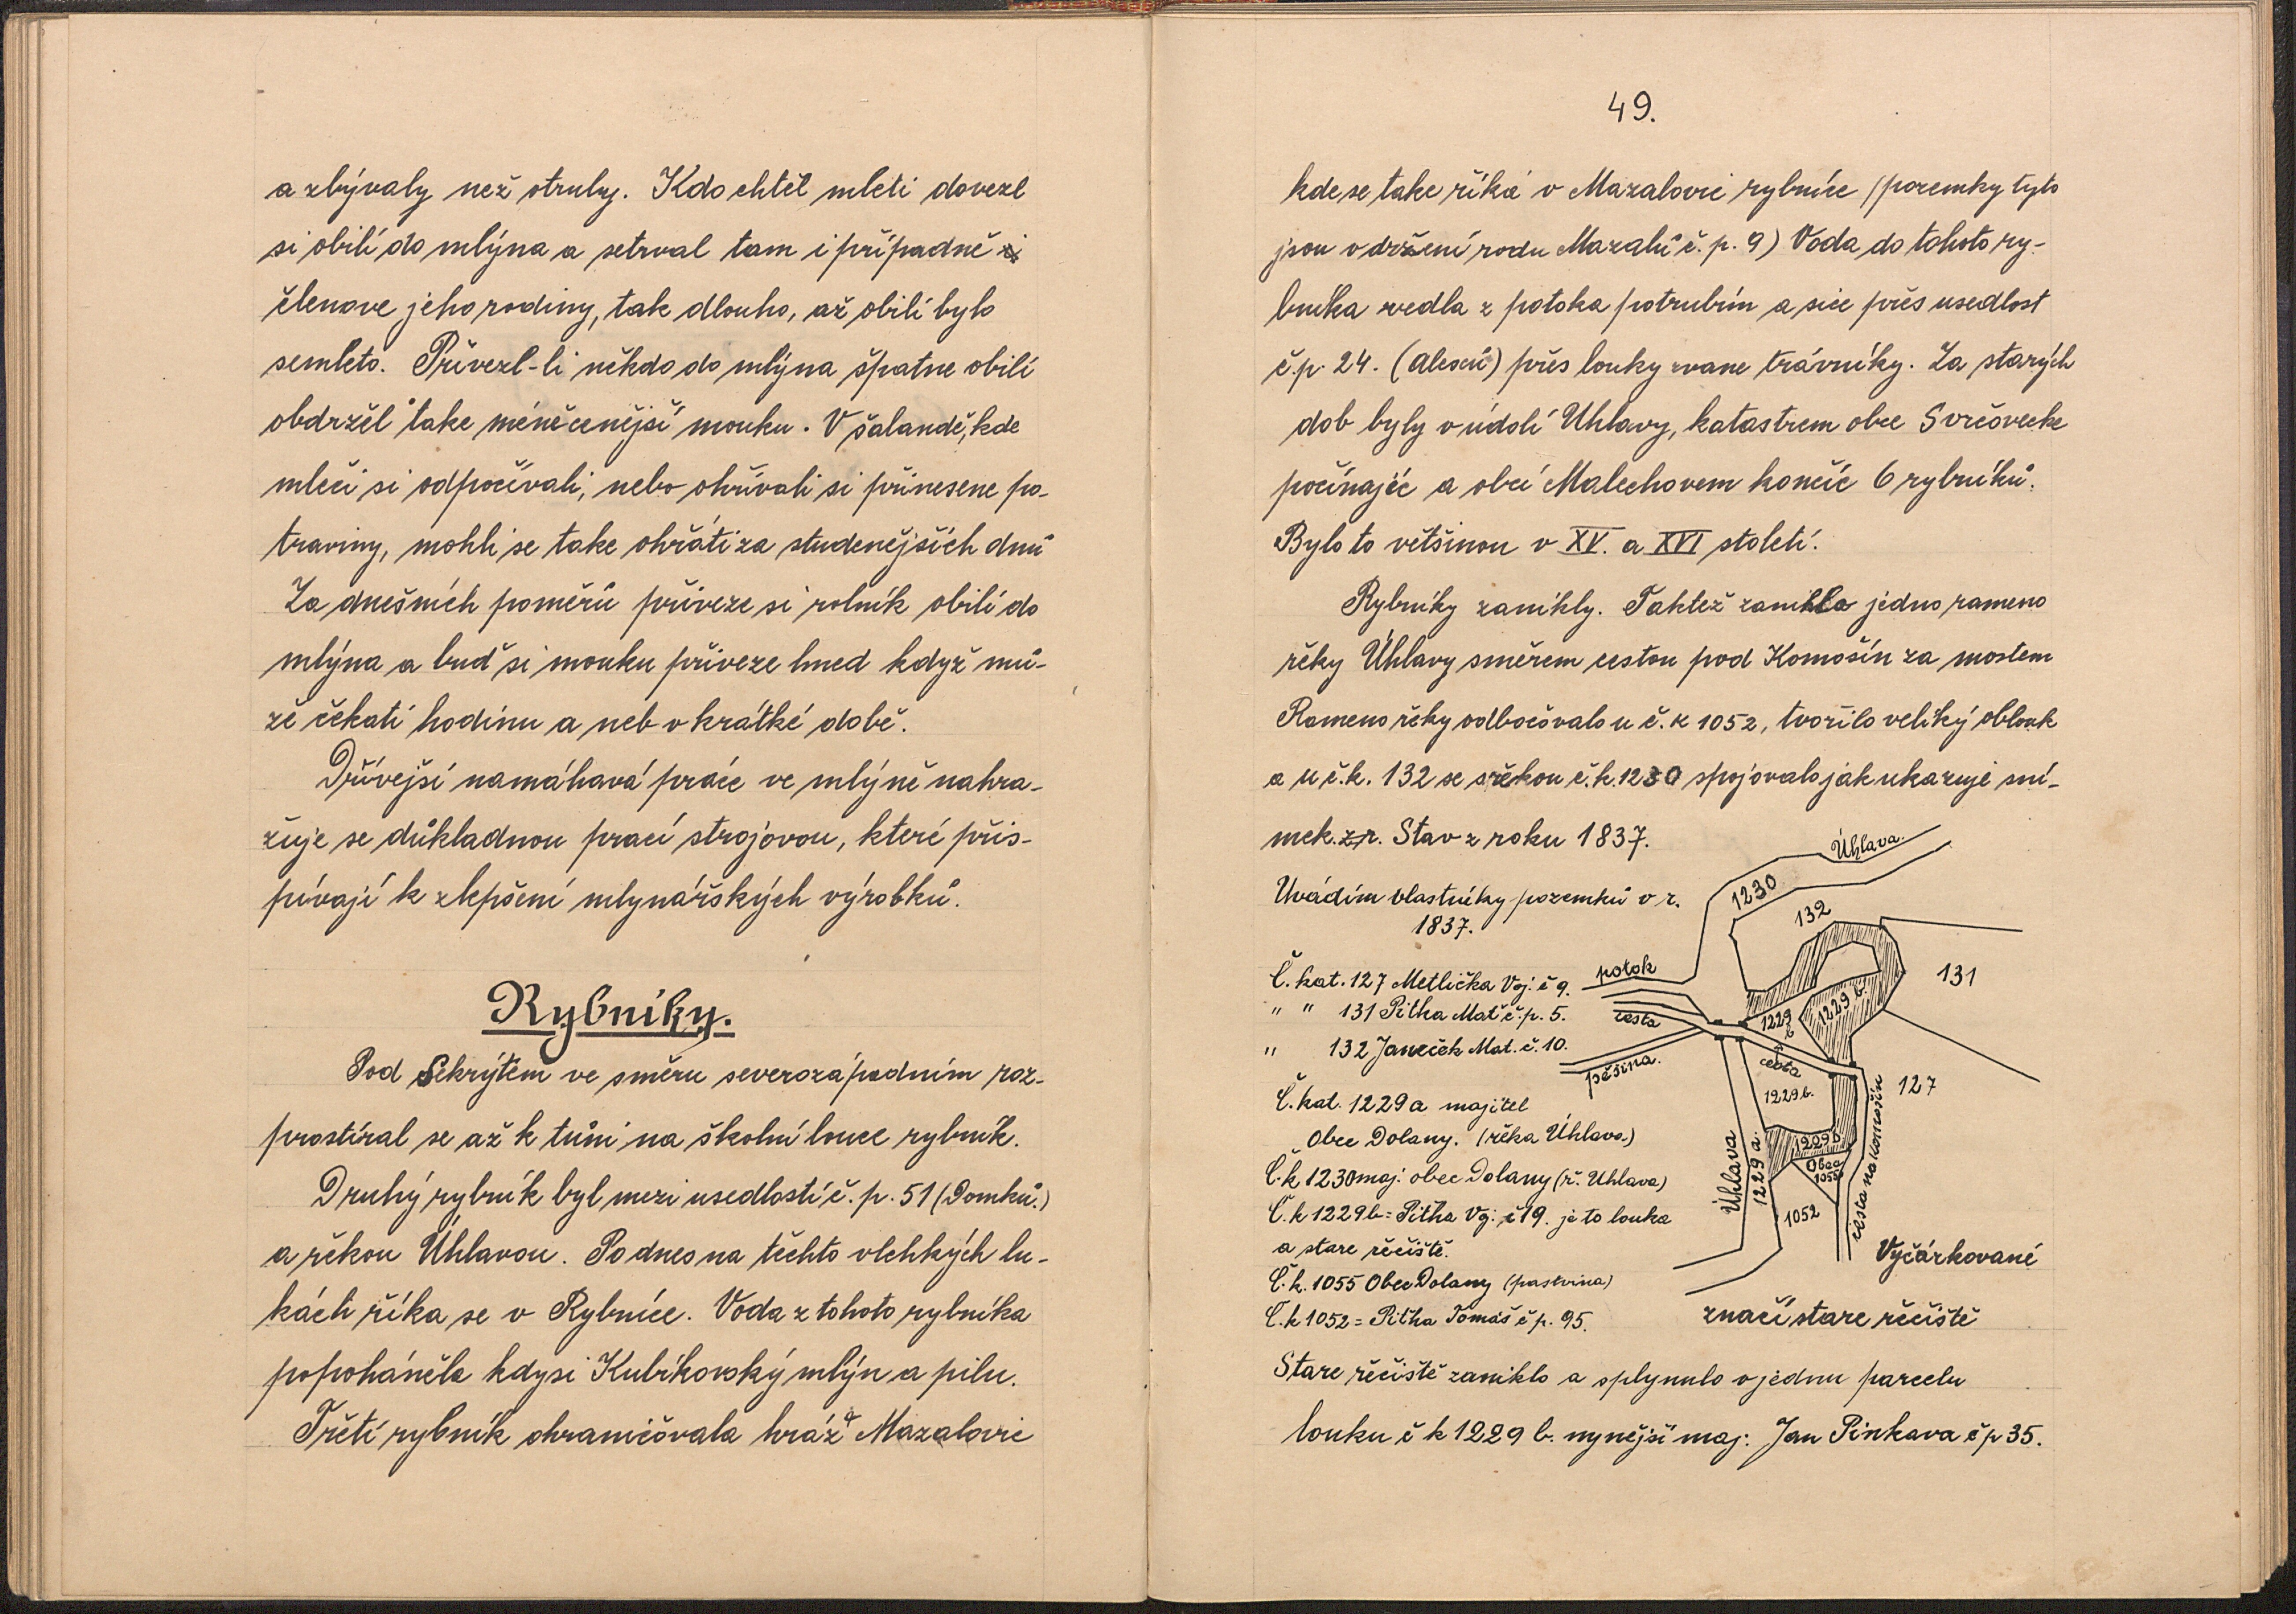 a zbývaly než otruby. Kdo chtěl mleti dovezl
si obilí do mlýna a setrval tam i případně
členove jeho rodiny, tak dlouho, až obilí bylo
semleto. Přivezl-li někdo do mlýna špatne obilí
obdržel take méněcenější mouku. V šalandě, kde
mleči si odpočívali, nebo ohřívali si přinesene po-
traviny, mohli se take ohřáti za studenějších dnů
Za dnešních poměrů přiveze si rolník obilí do
mlýna a buď si mouku přiveze hned když mů-
že čekati hodinu a neb v krátké době.
Dřívejší namáhavá práce ve mlýně nahra-
žuje se důkladnou prací strojovou, které přis-
pívají k zlepšení mlynářských výrobků.
Rybníky.
Pod Sekrýtem ve směru severozápadním roz-
prostíral se až k tůni na školní louce rybník.
Druhý rybník byl mezi usedlostí č. p. 51 (Domků.)
a řekou Úhlavou. Podnes na těchto vlehkých lu-
kách říka se v Rybníce. Voda z tohoto rybníka
popoháněla kdysi Kubíkovský mlýn a pilu.
Třetí rybník ohraničovala hráz a Mazalovic
49.
kde se take říká v Mazalovic rybníce (pozemky tyto
jsou v držení rodu Mazalů č. p. 9) Voda do tohoto ry-
bníka vedla z potoka potrubím a sice přes usedlost
č.p. 24. (Alexů) přes louky zvane trávníky. Za starých
dob byly v údolí Uhlavy, katastrem obce Svrčovecke
počínajíc a obcí Malechovem končíc 6 rybníků.
Bylo to většinou v XV. a XVI století.
Rybníky zanikly. Taktéž zaniklo jedno rameno
řéky Úhlavy směrem cestou pod Komošín za mostem
Rameno řeky odbočovalo u č. k 1052, tvořilo veliký oblouk
a u č.k. 132 se s řékou č.k. 1230 spojovalo jak ukazuje sní-
mek. z r. Stav z roku 1837.
Uvádím vlastníky pozemků v r.
1837.
Č. kat. 127 Metlička Voj. č 9.
" " 131 Pitka Mat č. p. 5.
" 132 Janeček Mat. č. 10.
Č. kat. 1229 a majitel
Obec Dolany. (řéka Úhlava.)
Č.k 1230 maj. obec Dolany (ř. Uhlava)
Č.k 1229b = Pitka Voj. č 19. je to louka
a stare řečiště.
Č.k. 1055 Obec Dolany (pastvina)
Č.k 1052 = Pitka Tomáš č p. 95.
Úhlava
1230
132
131
potok
cesta
pěšina.
1229 b
1229 b.
cesta
1229 b.
127
1229 b
Obec
1055
Úhlava
1229 a.
1052
cesta na Komošín
Vyčárkované
značí stare řečiště
Stare řečiště zaniklo a splynulo v jednu parcelu
louku č k 1229 b. nynější maj: Jan Pinkava č p 35.